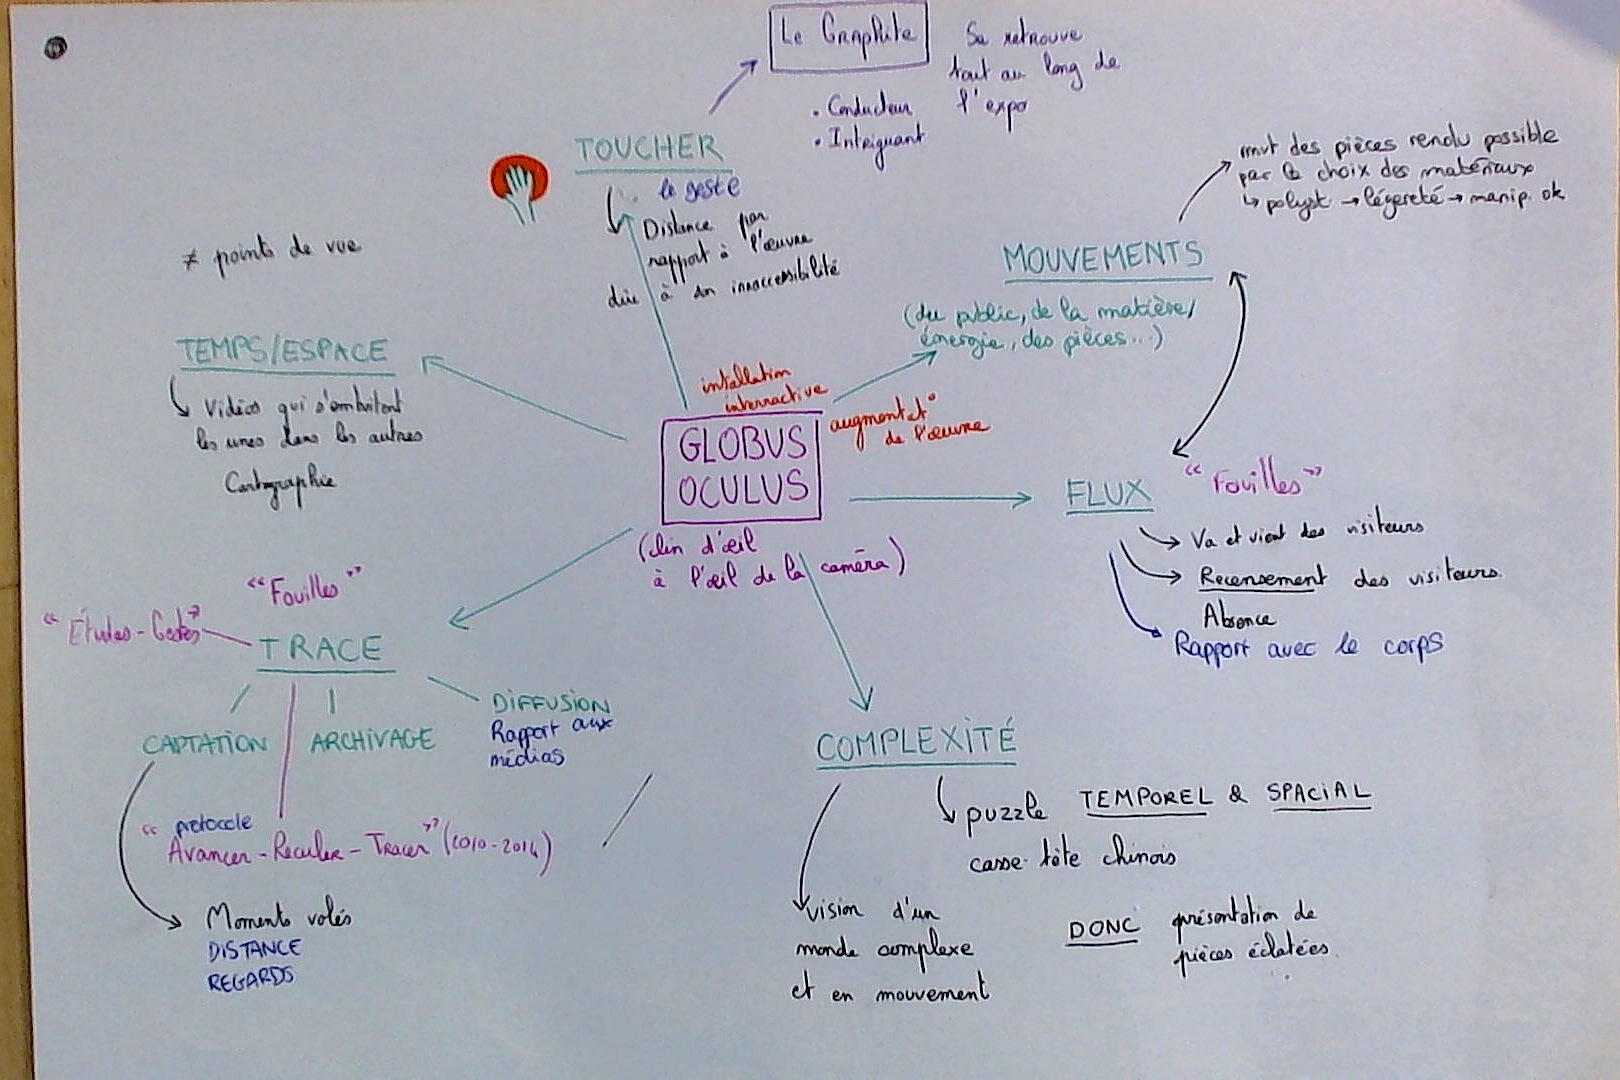 Le Graphite
Se retrouve
tout au long de
l'expo
. Conducteur
. Intriguant
TOUCHER
le geste
Distance par
rapport à l'œuvre
dûe à son innaccessibilité
mvt des pièces rendu possible
par le choix des matériaux
↳ polyst → légereté → manip. ok
MOUVEMENTS
(du public, de la matière/
énergie, des pièces...)
≠ points de vue
TEMPS/ESPACE
Vidéos qui s'emboitent
les unes dans les autres
Cartographie
intallation
interractive
augmentat°
de l'œuvre
GLOBUS
OCULUS
(clin d'œil
à l'œil de la caméra)
FLUX
"Fouilles"
Va et vient des visiteurs
Recensement des visiteurs.
Absence
Rapport avec le corps
"Fouilles"
"Études-Gestes"
TRACE
CAPTATION
ARCHIVAGE
DIFFUSION
Rapport aux
médias
protocole
"Avancer-Reculer-Tracer" (2010-2014)
Moments volés
DISTANCE
REGARDS
COMPLEXITÉ
puzzle TEMPOREL & SPACIAL
casse-tête chinois
vision d'un
monde complexe
et en mouvement
DONC présentation de
pièces éclatées.